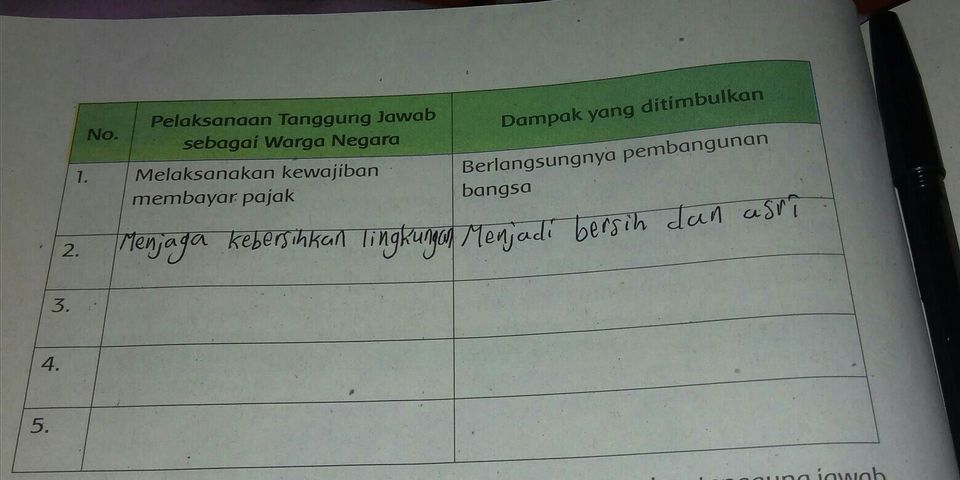 No. Pelaksanaan Tanggung Jawab sebagai Warga Negara Dampak yang ditimbulkan
1. Melaksanakan kewajiban membayar pajak Berlangsungnya pembangunan bangsa
2. Menjaga kebersihkan lingkungan Menjadi bersih dan asri
3.
4.
5.
jawab